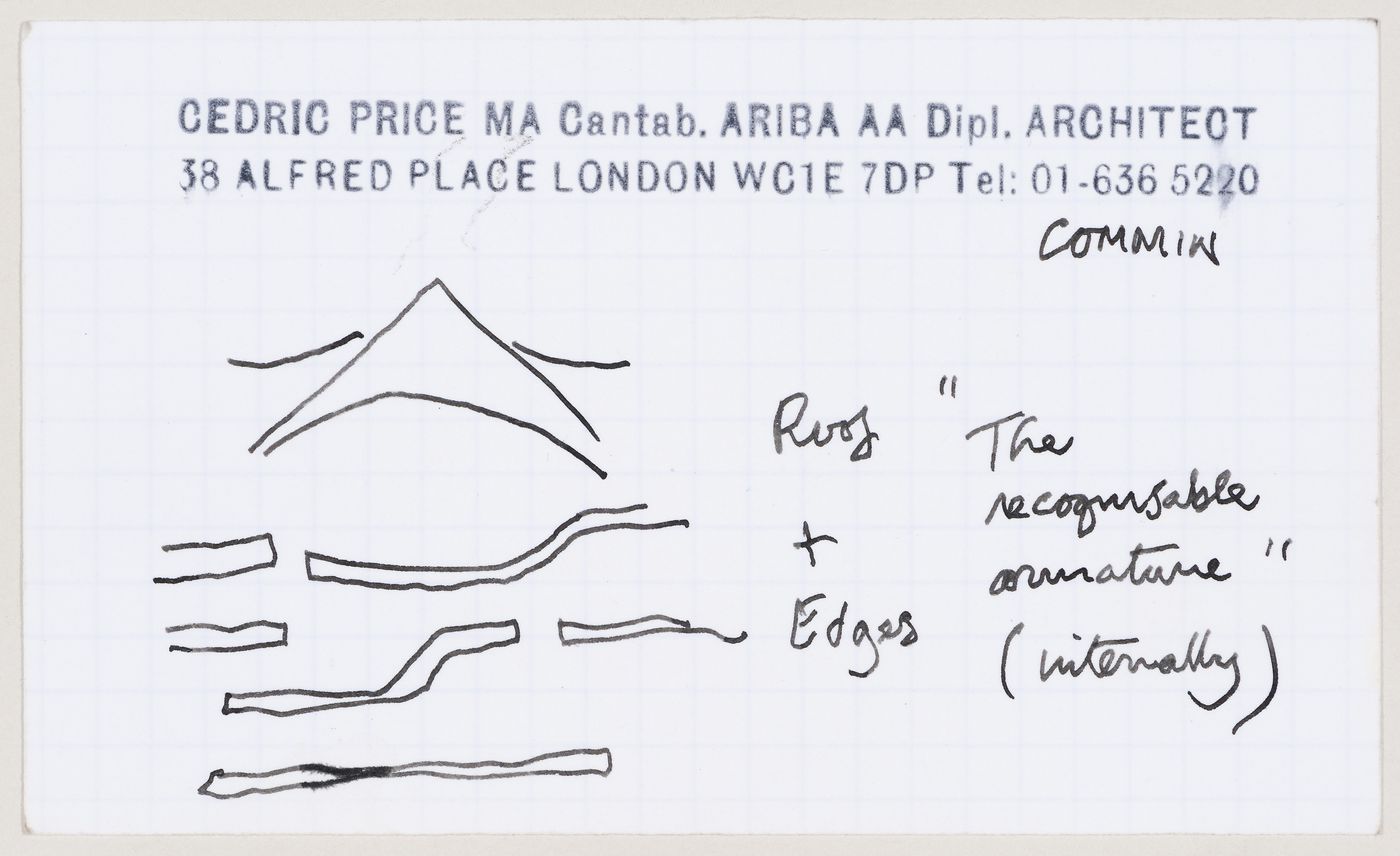 CEDRIC PRICE MA Cantab. ARIBA AA Dipl. ARCHITECT
38 ALFRED PLACE LONDON WC1E 7DP Tel: 01-636 5220
COMMIN
Roof "The
recognisable
+ armature"
Edges (internally)